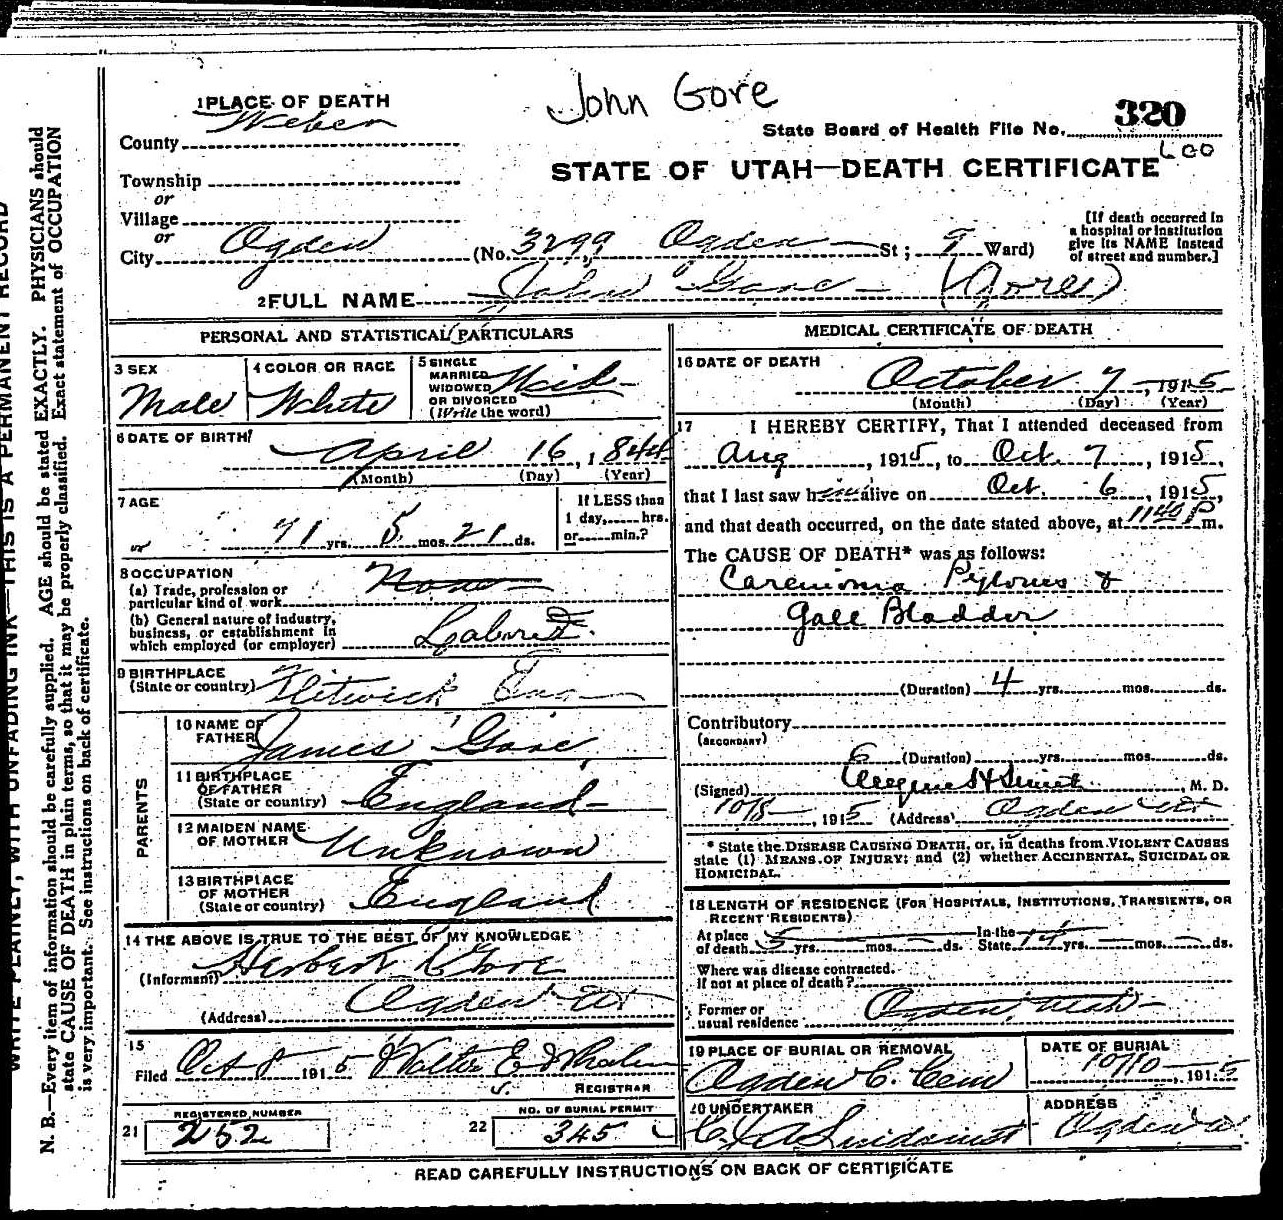 John Gore
1 PLACE OF DEATH
Weber
County
320
State Board of Health File No.
STATE OF UTAH—DEATH CERTIFICATE
Township
or
Village
or
City Ogden (No. 3299 Ogden St; 9 Ward)
[If death occurred in
a hospital or institution
give its NAME instead
of street and number.]
2 FULL NAME John Gore (Gore)
PERSONAL AND STATISTICAL PARTICULARS
3 SEX
Male
4 COLOR OR RACE
White
5 SINGLE
MARRIED
WIDOWED Wid
OR DIVORCED
(Write the word)
6 DATE OF BIRTH
April 16, 1844
(Month) (Day) (Year)
7 AGE
71 yrs. 5 mos. 21 ds.
If LESS than
1 day, hrs.
or min.?
8 OCCUPATION
(a) Trade, profession or
particular kind of work None
(b) General nature of industry,
business, or establishment in
which employed (or employer) Laborer
9 BIRTHPLACE
(State or country) Flitwick Eng
PARENTS
10 NAME OF
FATHER James Gore
11 BIRTHPLACE
OF FATHER
(State or country) England
12 MAIDEN NAME
OF MOTHER Unknown
13 BIRTHPLACE
OF MOTHER
(State or country) England
14 THE ABOVE IS TRUE TO THE BEST OF MY KNOWLEDGE
(Informant) Herbert Gore
(Address) Ogden Ut
15
Filed Oct 8 1915 Walter E. Whalen
REGISTRAR
21 REGISTERED NUMBER
252
22 NO. OF BURIAL PERMIT
345
MEDICAL CERTIFICATE OF DEATH
16 DATE OF DEATH
October 7, 1915
(Month) (Day) (Year)
17 I HEREBY CERTIFY, That I attended deceased from
Aug, 1915, to Oct. 7, 1915,
that I last saw him alive on Oct. 6, 1915,
and that death occurred, on the date stated above, at 11 40 P m.
The CAUSE OF DEATH* was as follows:
Carcinoma Pylorus &
Gall Bladder
(Duration) 4 yrs. mos. ds.
Contributory
(SECONDARY)
(Duration) yrs. mos. ds.
(Signed) Eugene H Smith, M. D.
10/8, 1915 (Address) Ogden Ut
* State the DISEASE CAUSING DEATH, or, in deaths from VIOLENT CAUSES
state (1) MEANS OF INJURY; and (2) whether ACCIDENTAL, SUICIDAL OR
HOMICIDAL.
18 LENGTH OF RESIDENCE (FOR HOSPITALS, INSTITUTIONS, TRANSIENTS, OR
RECENT RESIDENTS)
At place In the
of death 5 yrs. mos. ds. State 14 yrs. mos. ds.
Where was disease contracted.
if not at place of death?
Former or
usual residence Ogden, Utah
19 PLACE OF BURIAL OR REMOVAL
Ogden C. Cem
DATE OF BURIAL
10/10, 1915
20 UNDERTAKER
ADDRESS
Ogden
READ CAREFULLY INSTRUCTIONS ON BACK OF CERTIFICATE
WRITE PLAINLY, WITH UNFADING INK—THIS IS A PERMANENT RECORD
N. B.—Every item of information should be carefully supplied. AGE should be stated EXACTLY. PHYSICIANS should
state CAUSE OF DEATH in plain terms, so that it may be properly classified. Exact statement of OCCUPATION
is very important. See instructions on back of certificate.